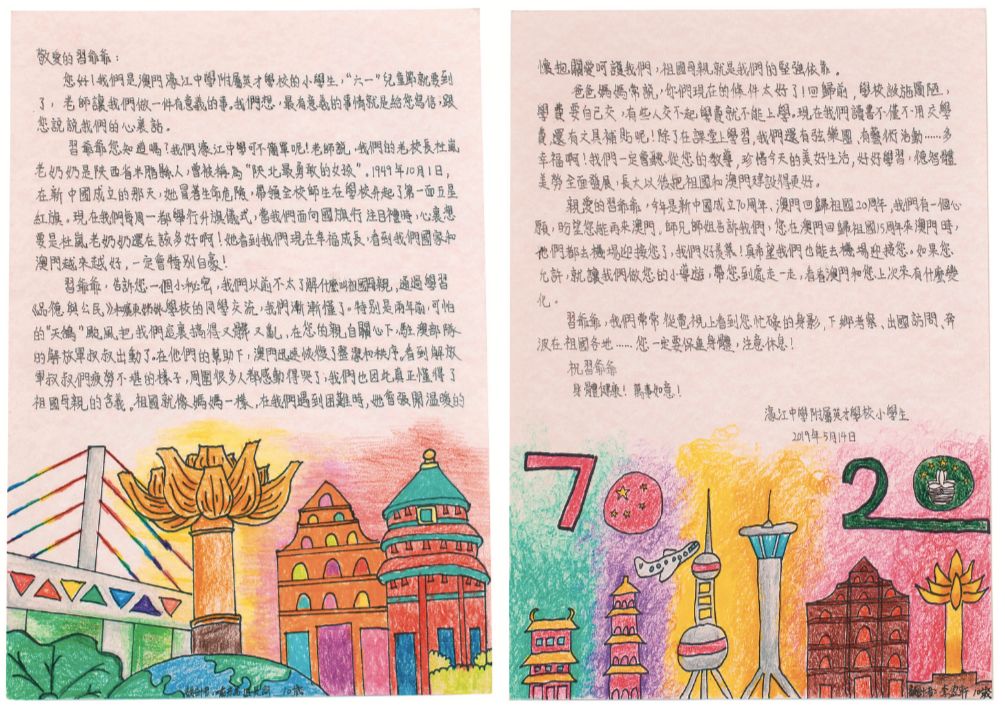 敬愛的習爺爺：
您好！我們是澳門濠江中學附屬英才學校的小學生，“六一”兒童節就要到
了，老師讓我們做一件有意義的事。我們想，最有意義的事情就是給您寫信，跟
您說說我們的心裏話。
習爺爺您知道嗎？我們濠江中學可不簡單呢！老師說，我們的老校長杜嵐
老奶奶是陝西省米脂縣人，曾被稱為“陝北最勇敢的女孩”。1949年10月1日，
在新中國成立的那天，她冒著生命危險，帶領全校師生在學校升起了第一面五星
紅旗。現在我們每周一都舉行升旗儀式，當我們面向國旗行注目禮時，心裏想
要是杜嵐老奶奶還在該多好啊！她看到我們現在幸福成長，看到我們國家和
澳門越來越好，一定會特別自豪！
習爺爺，告訴您一個小秘密，我們以前不太了解什麼叫祖國母親，通過學習
《品德與公民》學校的同學交流，我們漸漸懂了。特別是兩年前，可怕
的“天鴿”颱風把我們家裏搞得又髒又亂，在您的親自關心下，駐澳部隊
的解放軍叔叔出動了。在他們的幫助下，澳門迅速恢復了整潔和秩序。看到解放
軍叔叔們疲勞不堪的樣子，周圍很多人都感動得哭了，我們也因此真正懂得了
祖國母親的含義。祖國就像媽媽一樣，在我們遇到困難時，她會張開溫暖的
懷抱關愛呵護我們，祖國母親就是我們的堅強依靠。
爸爸媽媽常說，你們現在的條件太好了！回歸前，學校設施簡陋，
學費要自己交，有些人交不起學費就不能上學。現在我們讀書不僅不用交學
費，還有文具補貼呢！除了在課堂上學習，我們還有弦樂團，有藝術活動……多
幸福啊！我們一定會聽從您的教導，珍惜今天的美好生活，好好學習，德智體
美勞全面發展，長大以後把祖國和澳門建設得更好。
親愛的習爺爺，今年是新中國成立70周年、澳門回歸祖國20周年，我們有一個心
願，盼望您能再來澳門，師兄師姐告訴我們，您在澳門回歸祖國15周年來澳門時，
他們都去機場迎接您了，我們好羨慕！真希望我們也能去機場迎接您。如果您
允許，就讓我們做您的小導遊，帶您到處走一走，看看澳門和您上次來有什麼變
化。
習爺爺，我們常常從電視上看到您忙碌的身影，下鄉考察、出國訪問、奔
波在祖國各地……您一定要保重身體，注意休息！
祝習爺爺
身體健康！萬事如意！
濠江中學附屬英才學校小學生
2019年5月14日
70 20
10歲
10歲